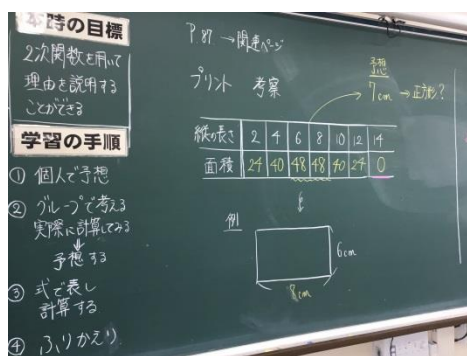 本時の目標
2次関数を用いて
理由を説明する
ことができる
学習の手順
① 個人で予想
② グループで考える
実際に計算してみる
予想する
③ 式で表し
計算する
④ ふりかえり
P.87 →関連ページ
プリント 考察
予想
7cm → 正方形?
縦の長さ 2 4 6 8 10 12 14
面積 24 40 48 48 40 24 0
例
6cm
8cm